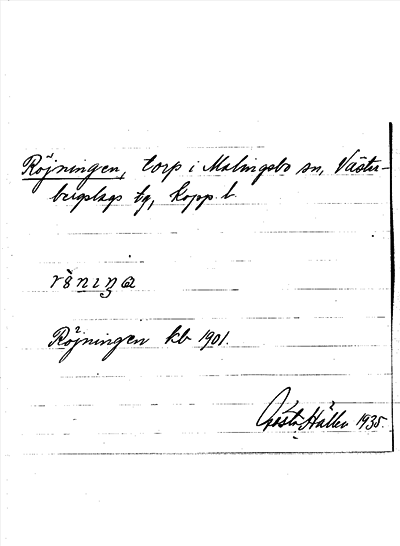 Röjningen, torp i Malingsbo sn, Väster-
bergslags tg, Kopp. l.
Röjningen kb 1901.
Gösta Hallén 1935.